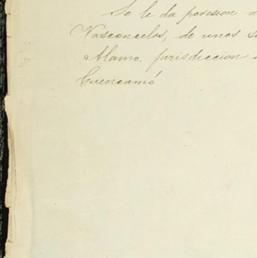 Se le da posesion
Vasconcelos, de unos
Alamo, jurisdiccion
Cuencamé